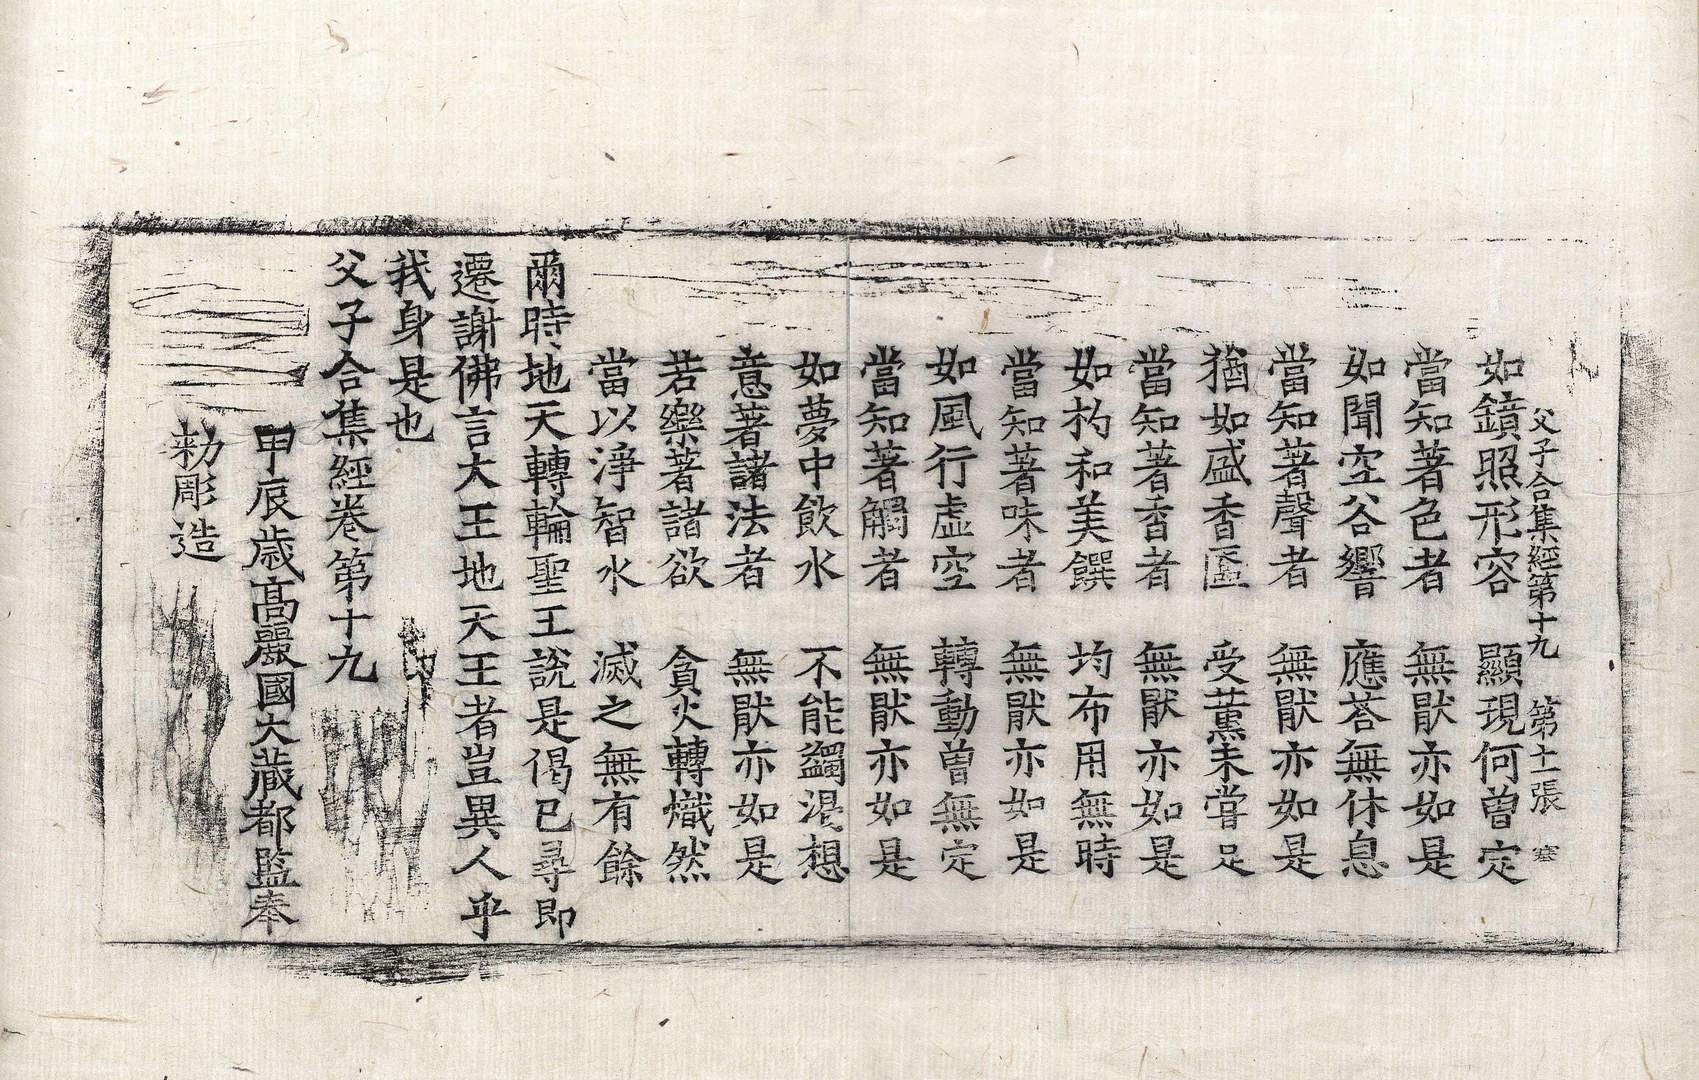 父子合集經第十九 第十一張 寒
如鏡照形容 顯現何曾定
當知著色者 無猒亦如是
如聞空谷響 應荅無休息
當知著聲者 無猒亦如是
猶如盛香匳 受薰未甞足
當知著香者 無猒亦如是
如杓和美饌 均布用無時
當知著味者 無猒亦如是
如風行虛空 轉動曾無定
當知著觸者 無猒亦如是
如夢中飲水 不能蠲渴想
意著諸法者 無猒亦如是
若樂著諸欲 貪火轉熾然
當以淨智水 滅之無有餘
爾時地天轉輪聖王說是偈已尋即
遷謝佛言大王地天王者豈異人乎
我身是也
父子合集經卷第十九
甲辰歲高麗國大藏都監奉
勑彫造